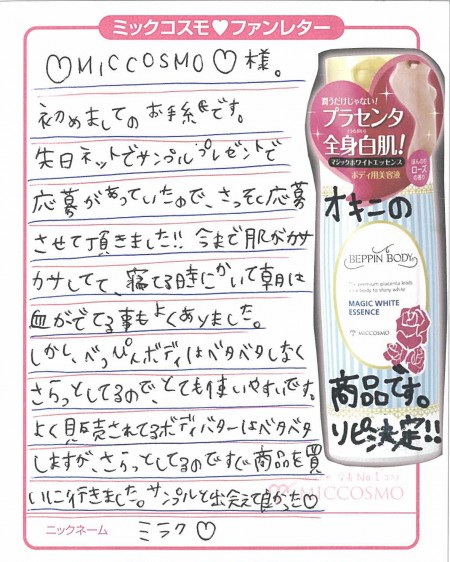 ミックコスモ♥ファンレター
♡MICCOSMO♡様。
初めましてのお手紙です。
先日ネットでサンプルプレゼントで
応募があっていたので、さっそく応募
させて頂きました!! 今まで肌がカサ
カサしてて、寝てる時にかいて朝は
血がでてる事もよくありました。
しかし、べっぴんボディはベタベタしなく
さらっとしてるので、とても使いやすいです。
よく見販売されてるボディバターはベタベタ
しますが、さらっとしてるのですぐ商品を買
いに行きました。サンプルと出会えて良かった♡
MICCOSMO
ニックネーム
ミラク♡
潤うだけじゃない!
プラセンタ
全身白肌!
マジックホワイトエッセンス
ボディ用美容液
ほんのり
ローズ
の香り
オキニの
BEPPIN BODY
MAGIC WHITE
ESSENCE
MICCOSMO
商品です。
リピ決定!!